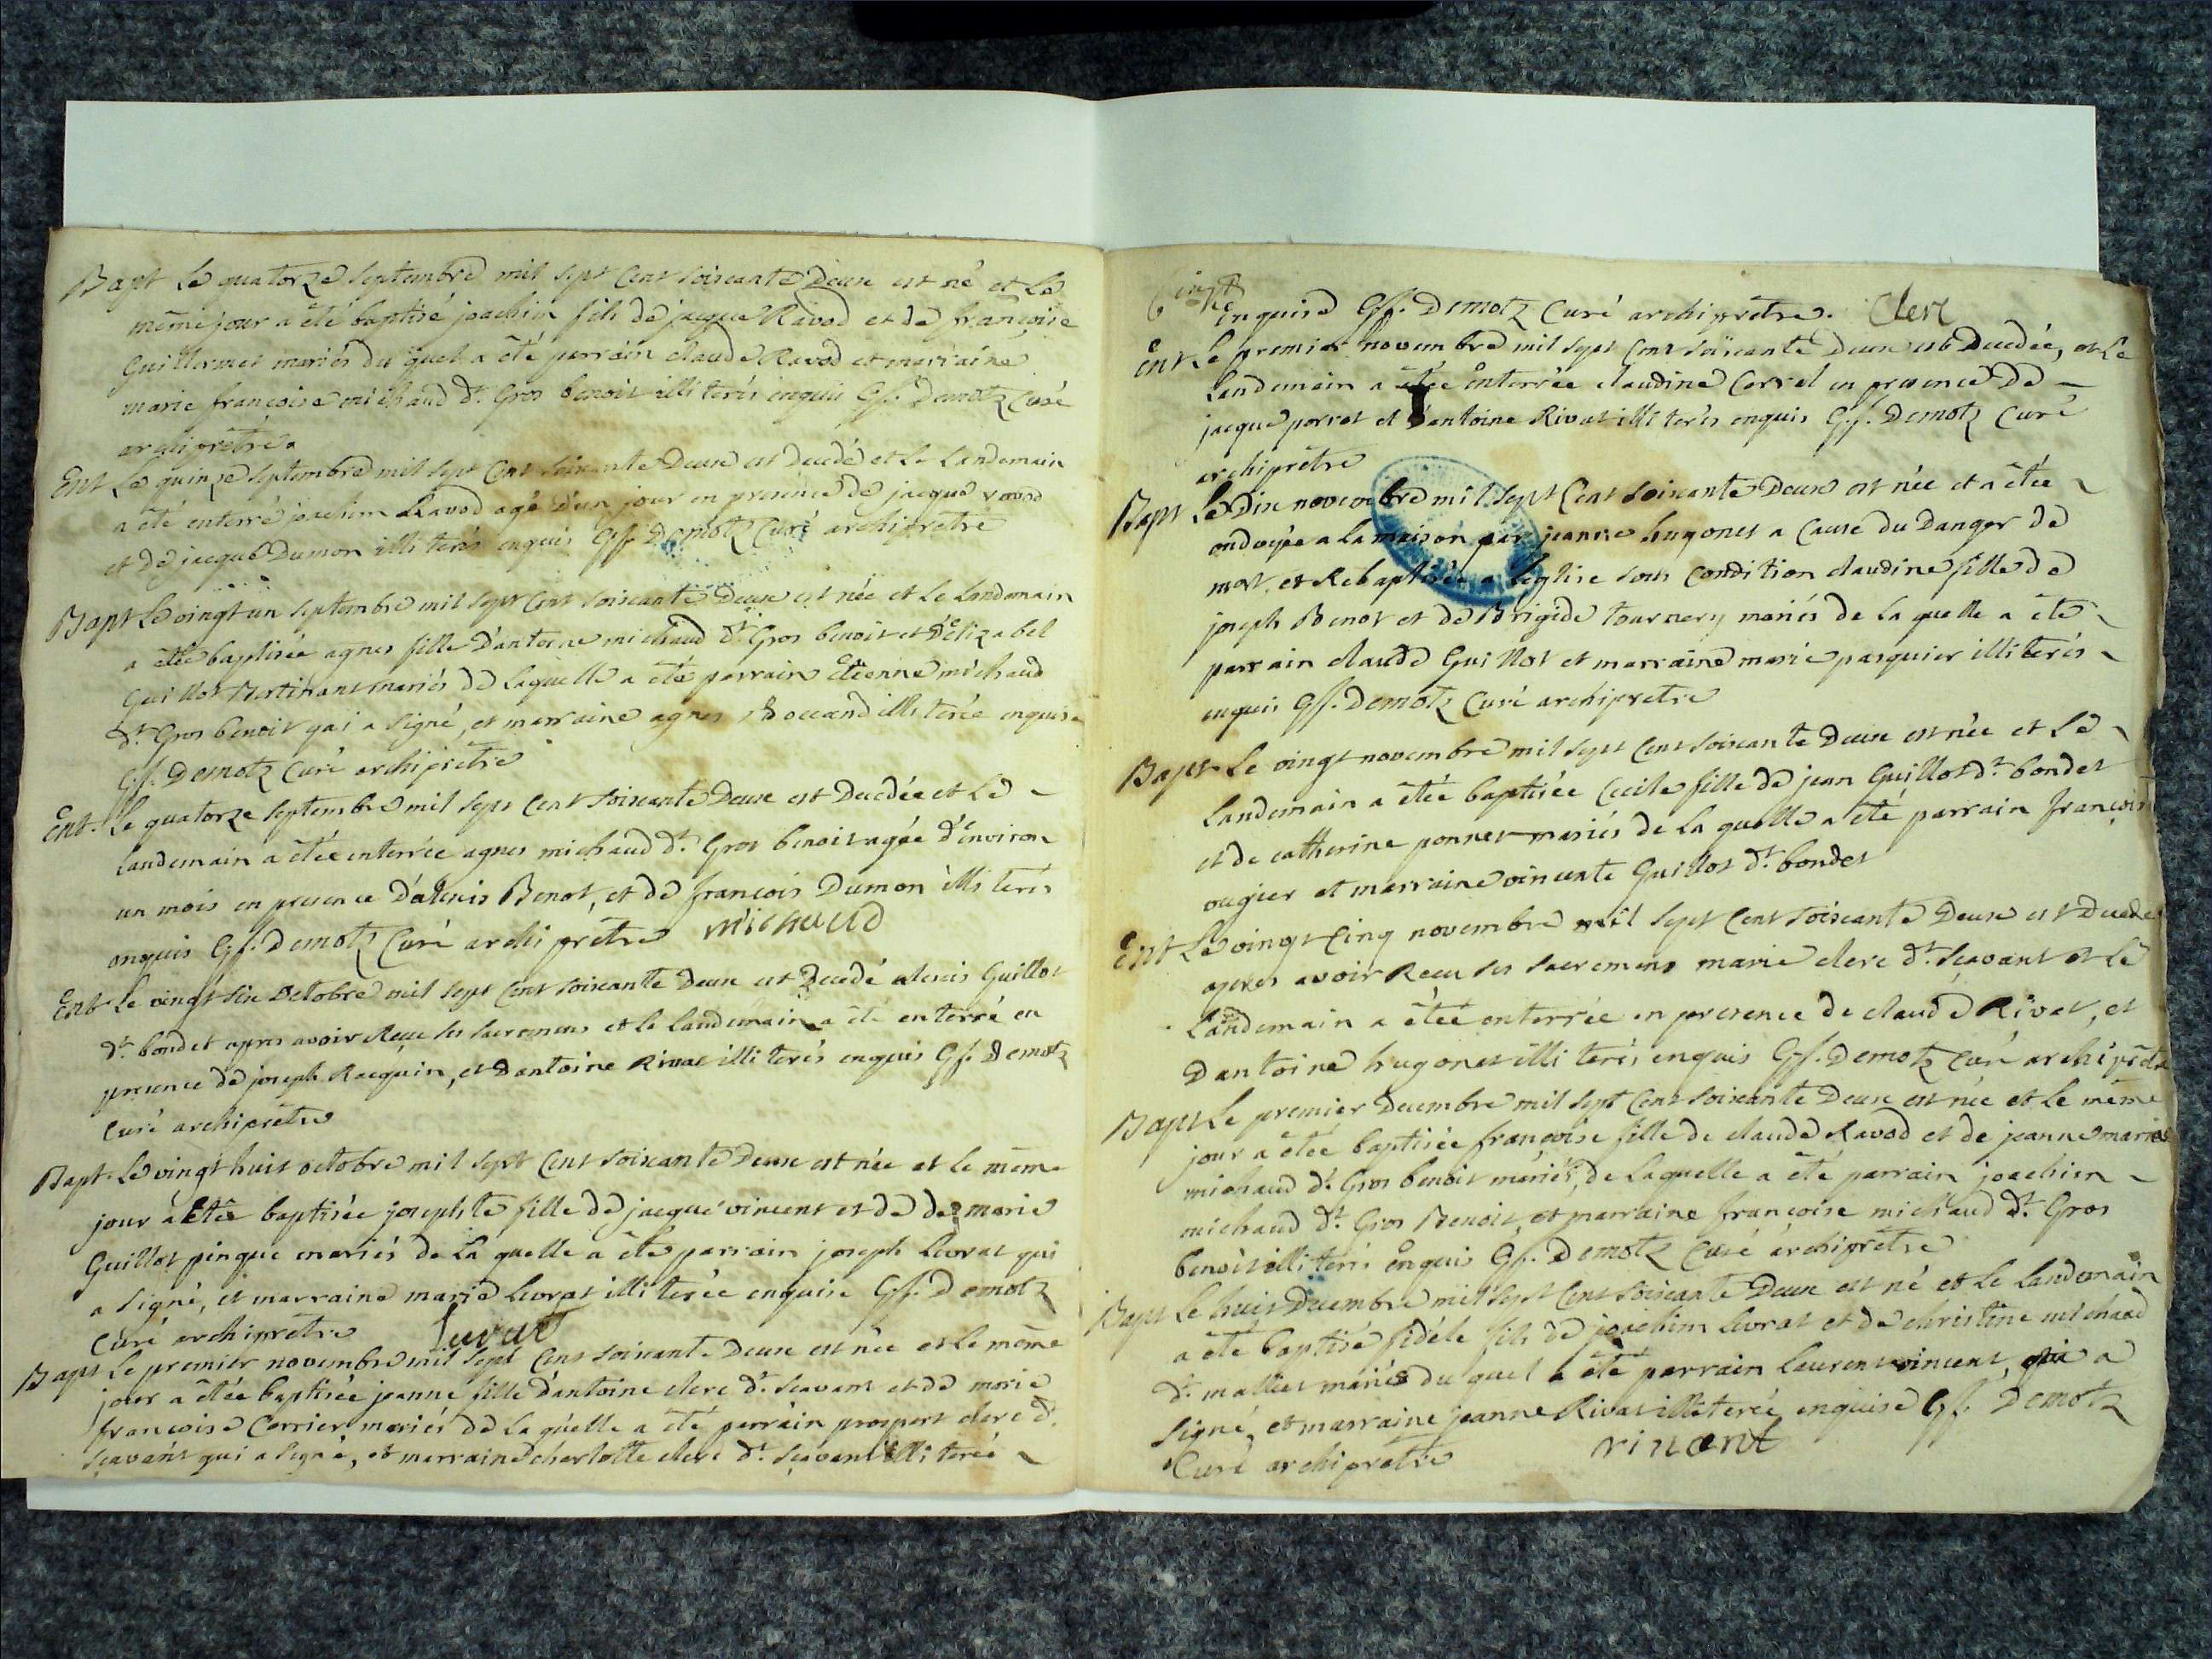 Bapt Le quatorze septembre mil sept Cent soixante Deux est né et Le
même jour a été baptisé joachim fils de jacque Ravod et de françoise
Guillermet mariés du quel a été parrain claude Ravod et marraine
marie françoise michaud dt. Gros benoit illiterés enquis Gf. Demotz Curé
archiprêtre
Ent Le quinze septembre mil sept Cent soixante Deux est decedé et Le Landemain
a été enterré joachim Ravod agé d'un jour en presence de jacque ravod
et de jacque Dumon illiterés enquis Gf. Demotz Curé archiprêtre
Bapt Le vingt un septembre mil sept Cent soixante Deux est née et Le Landemain
a étée baptisée agnes fille d'antoine michaud dt. Gros benoit et d'élizabel
Guillot Bertinant mariés de laquelle a été parrain Etienne michaud
dt. Gros benoit qui a signé, et marraine agnes Bouand illiterée enquise
Gf. Demotz Curé archiprêtre
Ent. Le quatorze septembre mil sept Cent soixante Deux est Decedée et Le
landemain a étée enterrée agnes michaud dt. Gros benoit agée d'environ
un mois en presence d'alexis Benot, et de françois Dumon illiterés
enquis Gf. Demotz Curé archiprêtre michaud
Ent Le vingt six octobre mil sept Cent soixante Deux est Decedé alexis Guillot
dt. bondet apres avoir Reçu ses sacremens et le landemain a été enterré en
presence de joseph Racquin, et Dantoine Rivat illiterés enquis Gf. Demotz
Curé archiprêtre
Bapt. Le vingt huit octobre mil sept Cent soixante Deux est née et le même
jour a Etée baptisée josephte fille de jacque vincent et de de marie
Guillot pingue mariés de La quelle a été parrain joseph Levrat qui
a signé, et marraine marie Levrat illiterée enquise Gf. Demotz
Curé archiprêtre Levrat
Bapt Le premier novembre mil sept Cent soixante Deux est née et le même
jour a étée baptisée jeanne fille d'antoine clerc dt. scavant et de marie
françoise Cerrier mariés de La quelle a été parrain prospert clerc dt.
scavant qui a signé, et marraine charlotte clerc dt. scavant illiterée
enquise Gf. Demotz Curé archiprêtre. Clerc
Ent Le premier novembre mil sept Cent soixante Deux est Decedée, et Le
Landemain a étée enterrée claudine Corvel en presence de
jacque porrat et D'antoine Rivat illiterés enquis Gf. Demotz Curé
archiprêtre
Bapt Le Dix novembre mil sept Cent soixante Deux est née et a étée
ondoyée a la maison par jeanne hugonet a Cause du Danger de
mort, et Rebaptisée a l'église sous Condition claudine fille de
joseph Benot et de Brigide tournery mariés de La quelle a été
parrain claude Guillot et marraine marie pasquier illiterés
enquis Gf. Demotz Curé archiprêtre
Bapt Le vingt novembre mil sept Cent soixante Deux est née et Le
Landemain a étée baptisée Cecile fille de jean Guillot dt. bondet
et de catherine ponnet mariés de la quelle a été parrain françois
ougier et marraine vincente Guillot dt. bondet
Ent Le vingt Cinq novembre mil sept Cent soixante Deux est Decedée
apres avoir Recu ses sacremens marie clerc dt. scavant et Le
Landemain a étée enterrée en presence de claude Rivat, et
Dantoine hugonet illiterés enquis Gf. Demotz Curé archiprêtre
Bapt Le premier Decembre mil sept Cent soixante Deux est née et Le même
jour a étée baptisée françoise fille de claude Ravod et de jeanne marie
michaud dt. Gros benoit mariés, de laquelle a été parrain joachim
michaud dt. Gros Benoit, et marraine françoise michaud dt. Gros
benoit illiterés enquis Gf. Demotz Curé archiprêtre
Bapt Le huit Decembre mil sept Cent soixante Deux est né et Le landemain
a été baptisé fidéle fils de joachim Levrat et de christine michaud
dt. malliet mariés du quel a été parrain Laurent vincent, qui a
signé, et marraine jeanne Rivat illiterée enquise Gf. Demotz
Curé archiprêtre vincent